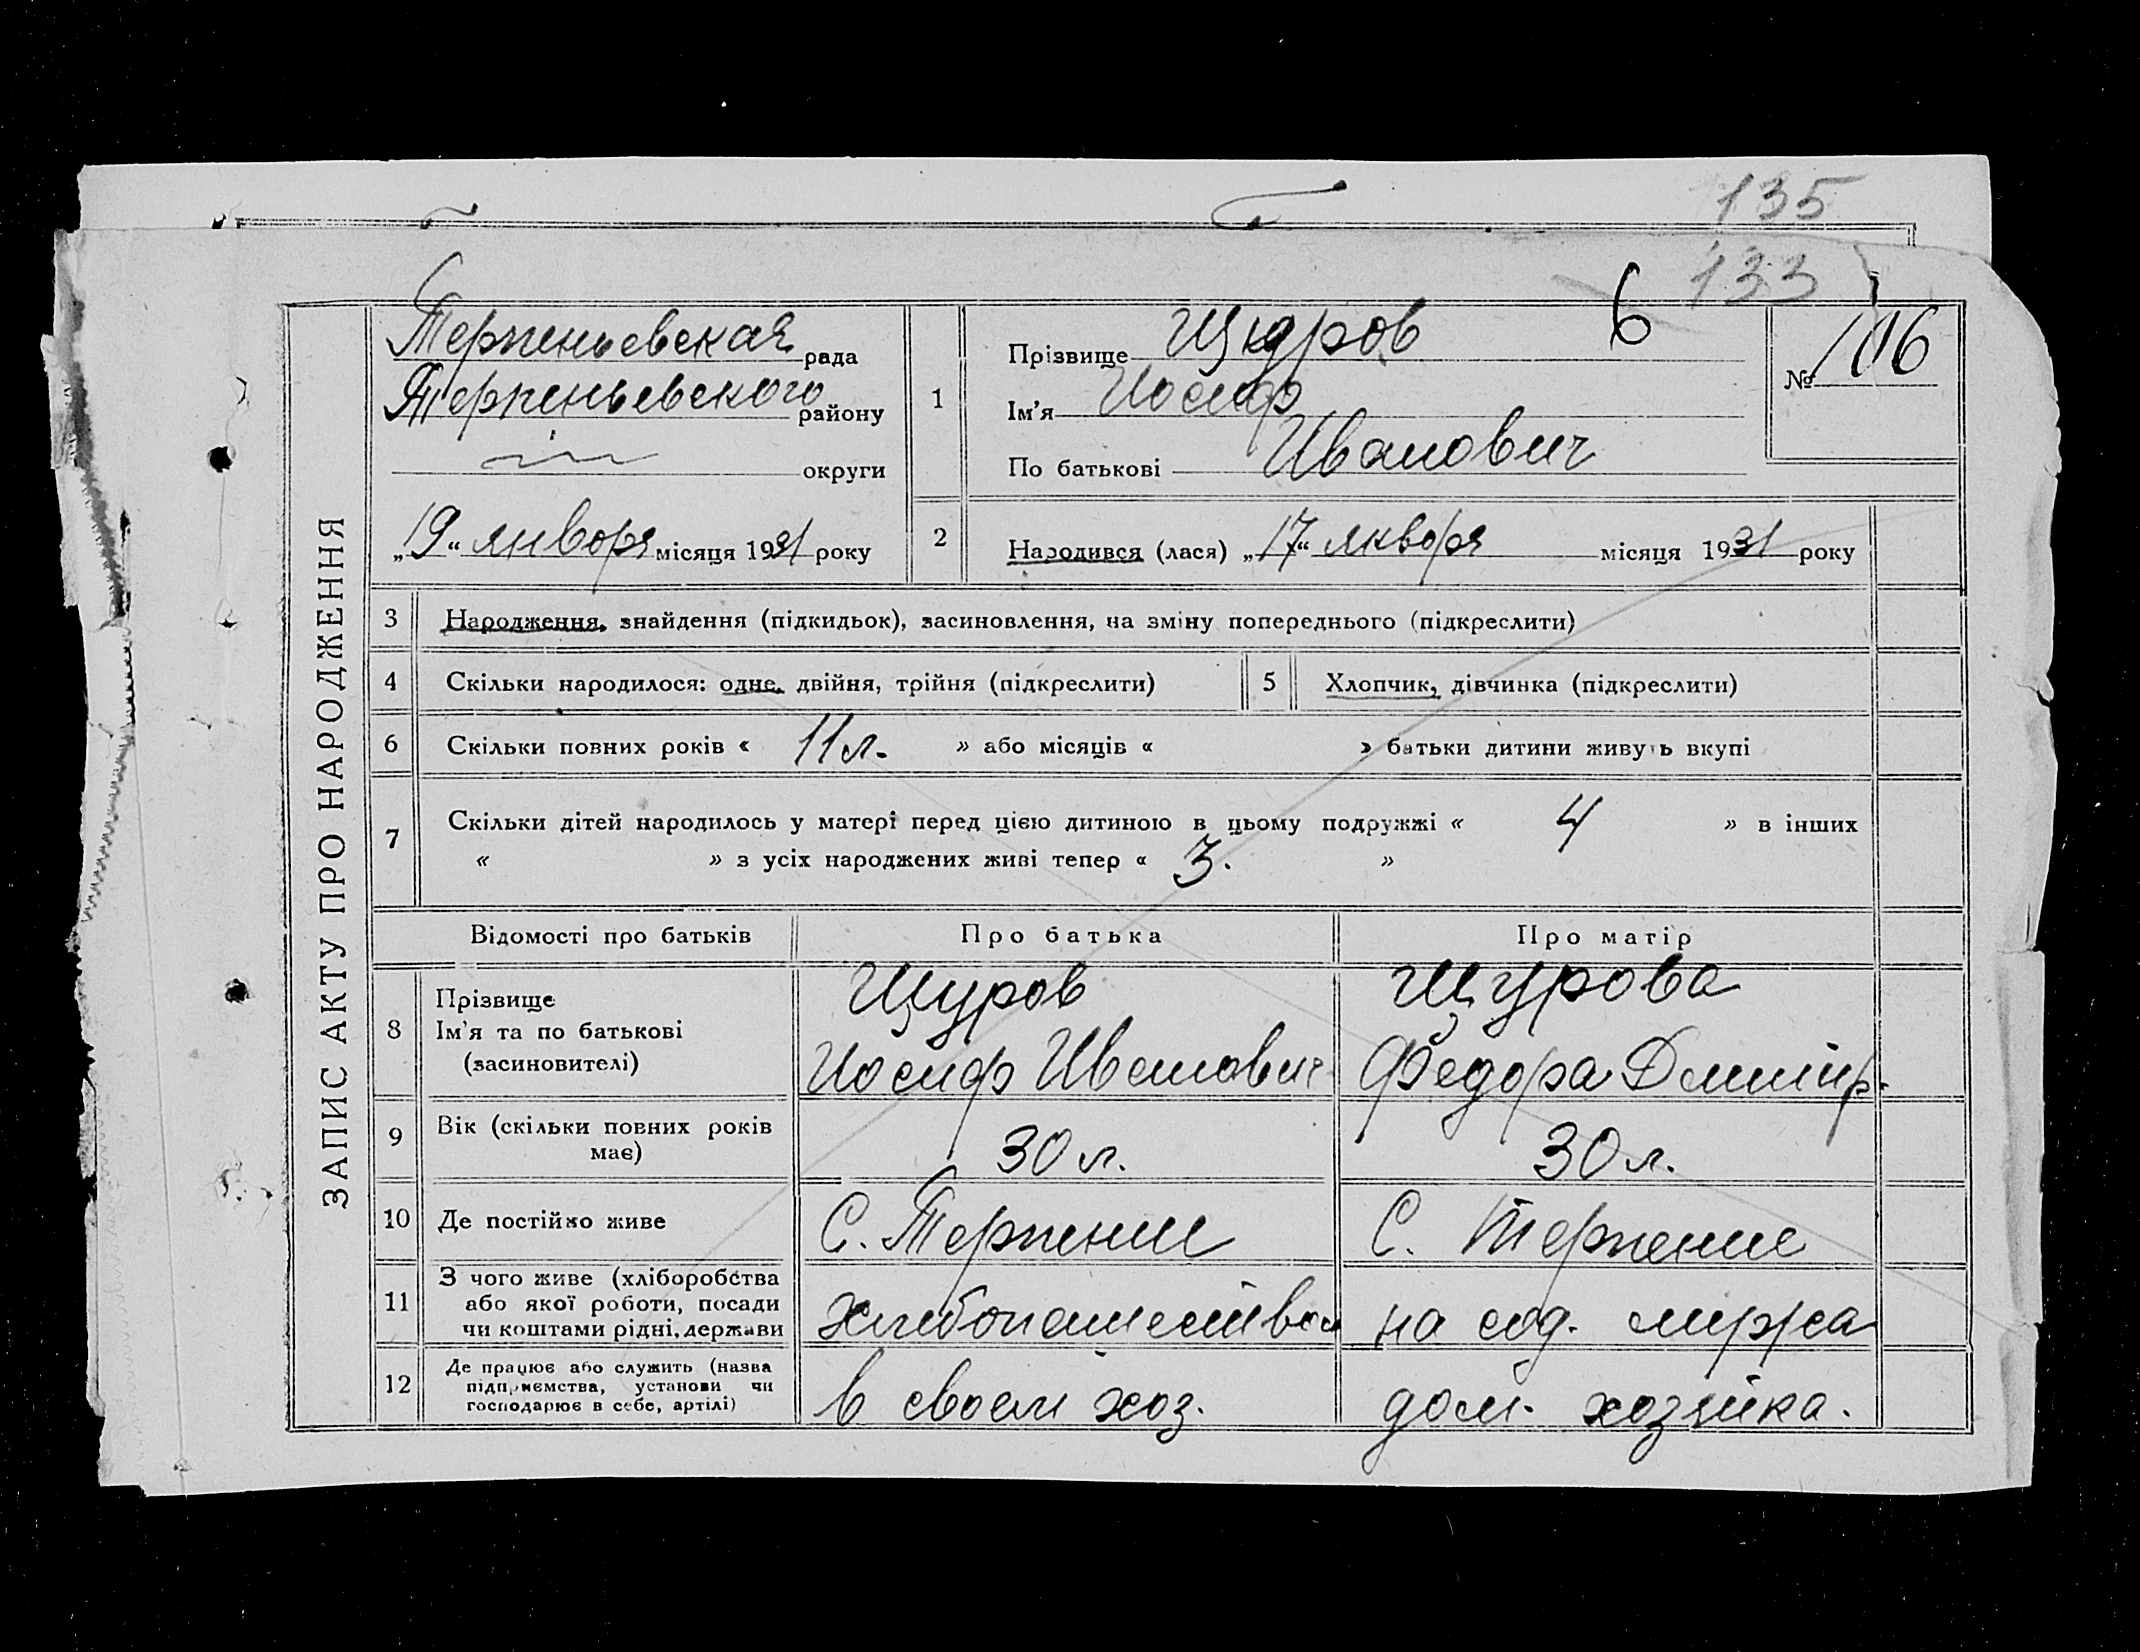 135
133
6
ЗАПИС АКТУ ПРО НАРОДЖЕННЯ
Терпеньевская рада
Терпеньевского району
округи
„19“ января місяця 1931 року
1
Прізвище Щуров
Ім'я Иосиф
По батькові Иванович
№ 106
2
Народився (лася) „17“ января місяця 1931 року
3 Народження, знайдення (підкидьок), засиновлення, на зміну попереднього (підкреслити)
4 Скільки народилося: одне, двійня, трійня (підкреслити)
5 Хлопчик, дівчинка (підкреслити)
6 Скільки повних років « 11 л. » або місяців « » батьки дитини живуть вкупі
7 Скільки дітей народилось у матері перед цією дитиною в цьому подружжі « 4 » в інших
« » з усіх народжених живі тепер « 3. »
Відомості про батьків Про батька Про матір
8 Прізвище
Ім'я та по батькові
(засиновителі)
Щуров
Иосиф Иванович
Щурова
Федора Дмитр.
9 Вік (скільки повних років
має)
30 л.
30 л.
10 Де постійно живе
С. Терпение
С. Терпение
11 З чого живе (хліборобства
або якої роботи, посади
чи коштами рідні, держави
хлебопашеством
на сод. мужа
12 Де працює або служить (назва
підприємства, установи чи
господарює в себе, артілі)
в своем хоз.
дом. хозяйка.